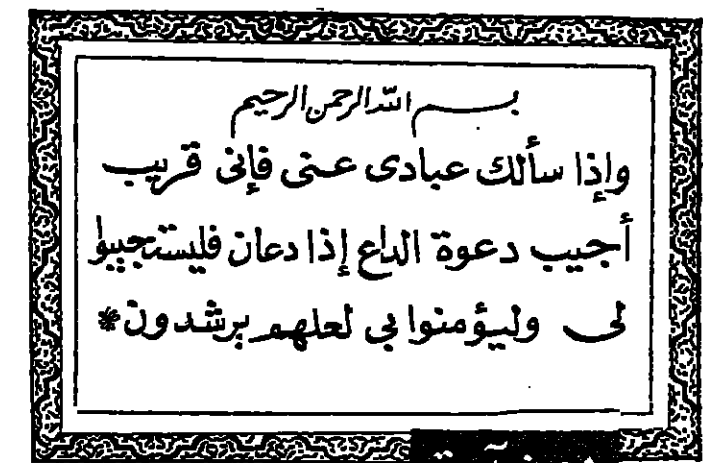 بسم الله الرحمن الرحيم
وإذا سألك عبادى عنى فإنى قريب
أجيب دعوة الداع إذا دعان فليستجيبوا
لى وليؤمنوا بي لعلهم يرشدون*